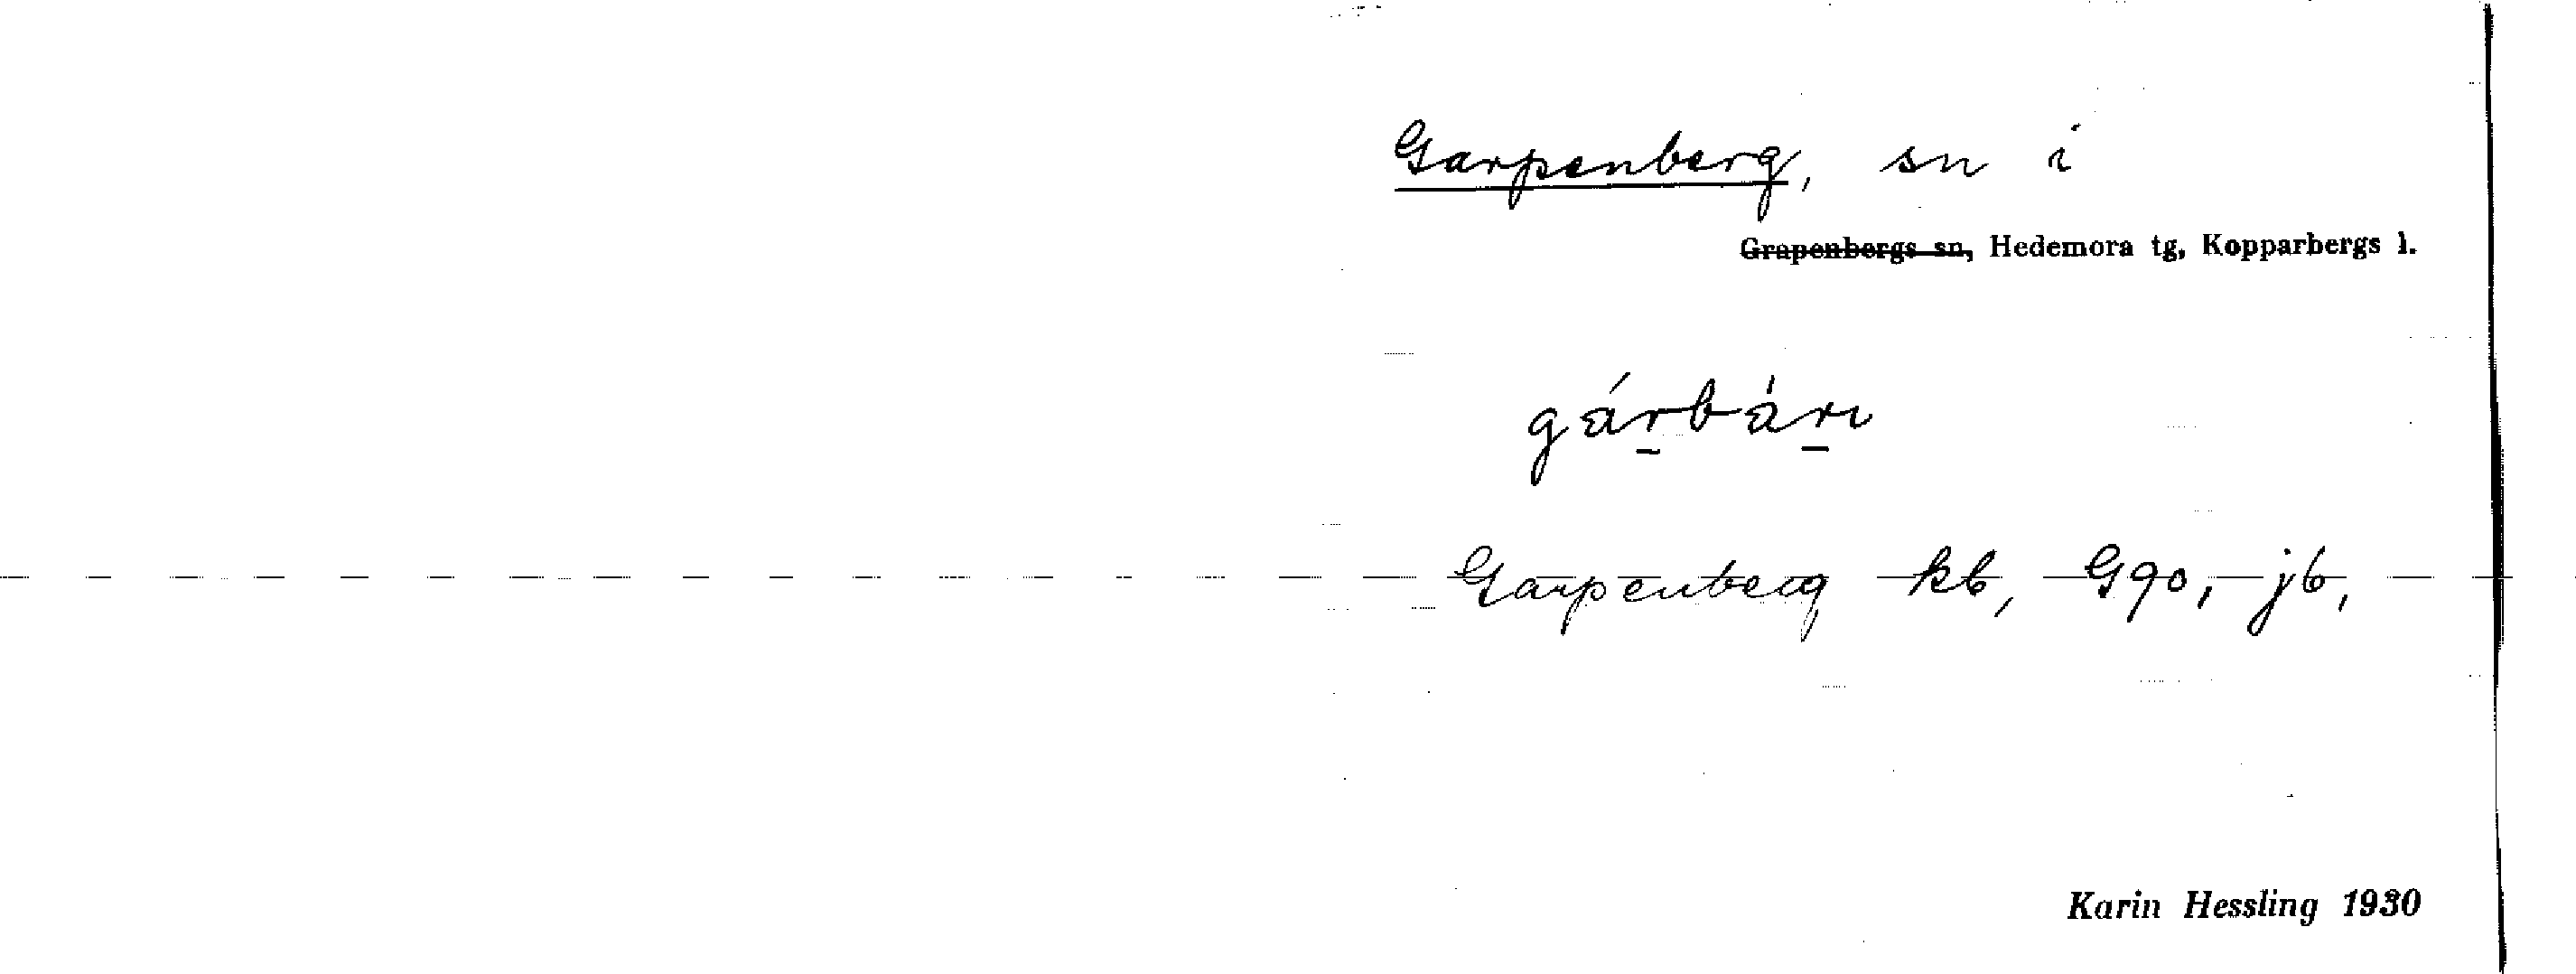 Garpenberg, sn i
Grapenbergs sn, Hedemora tg, Kopparbergs l.
gárbárı
Garpenberg kb, G90, jb,
Karin Hessling 1930